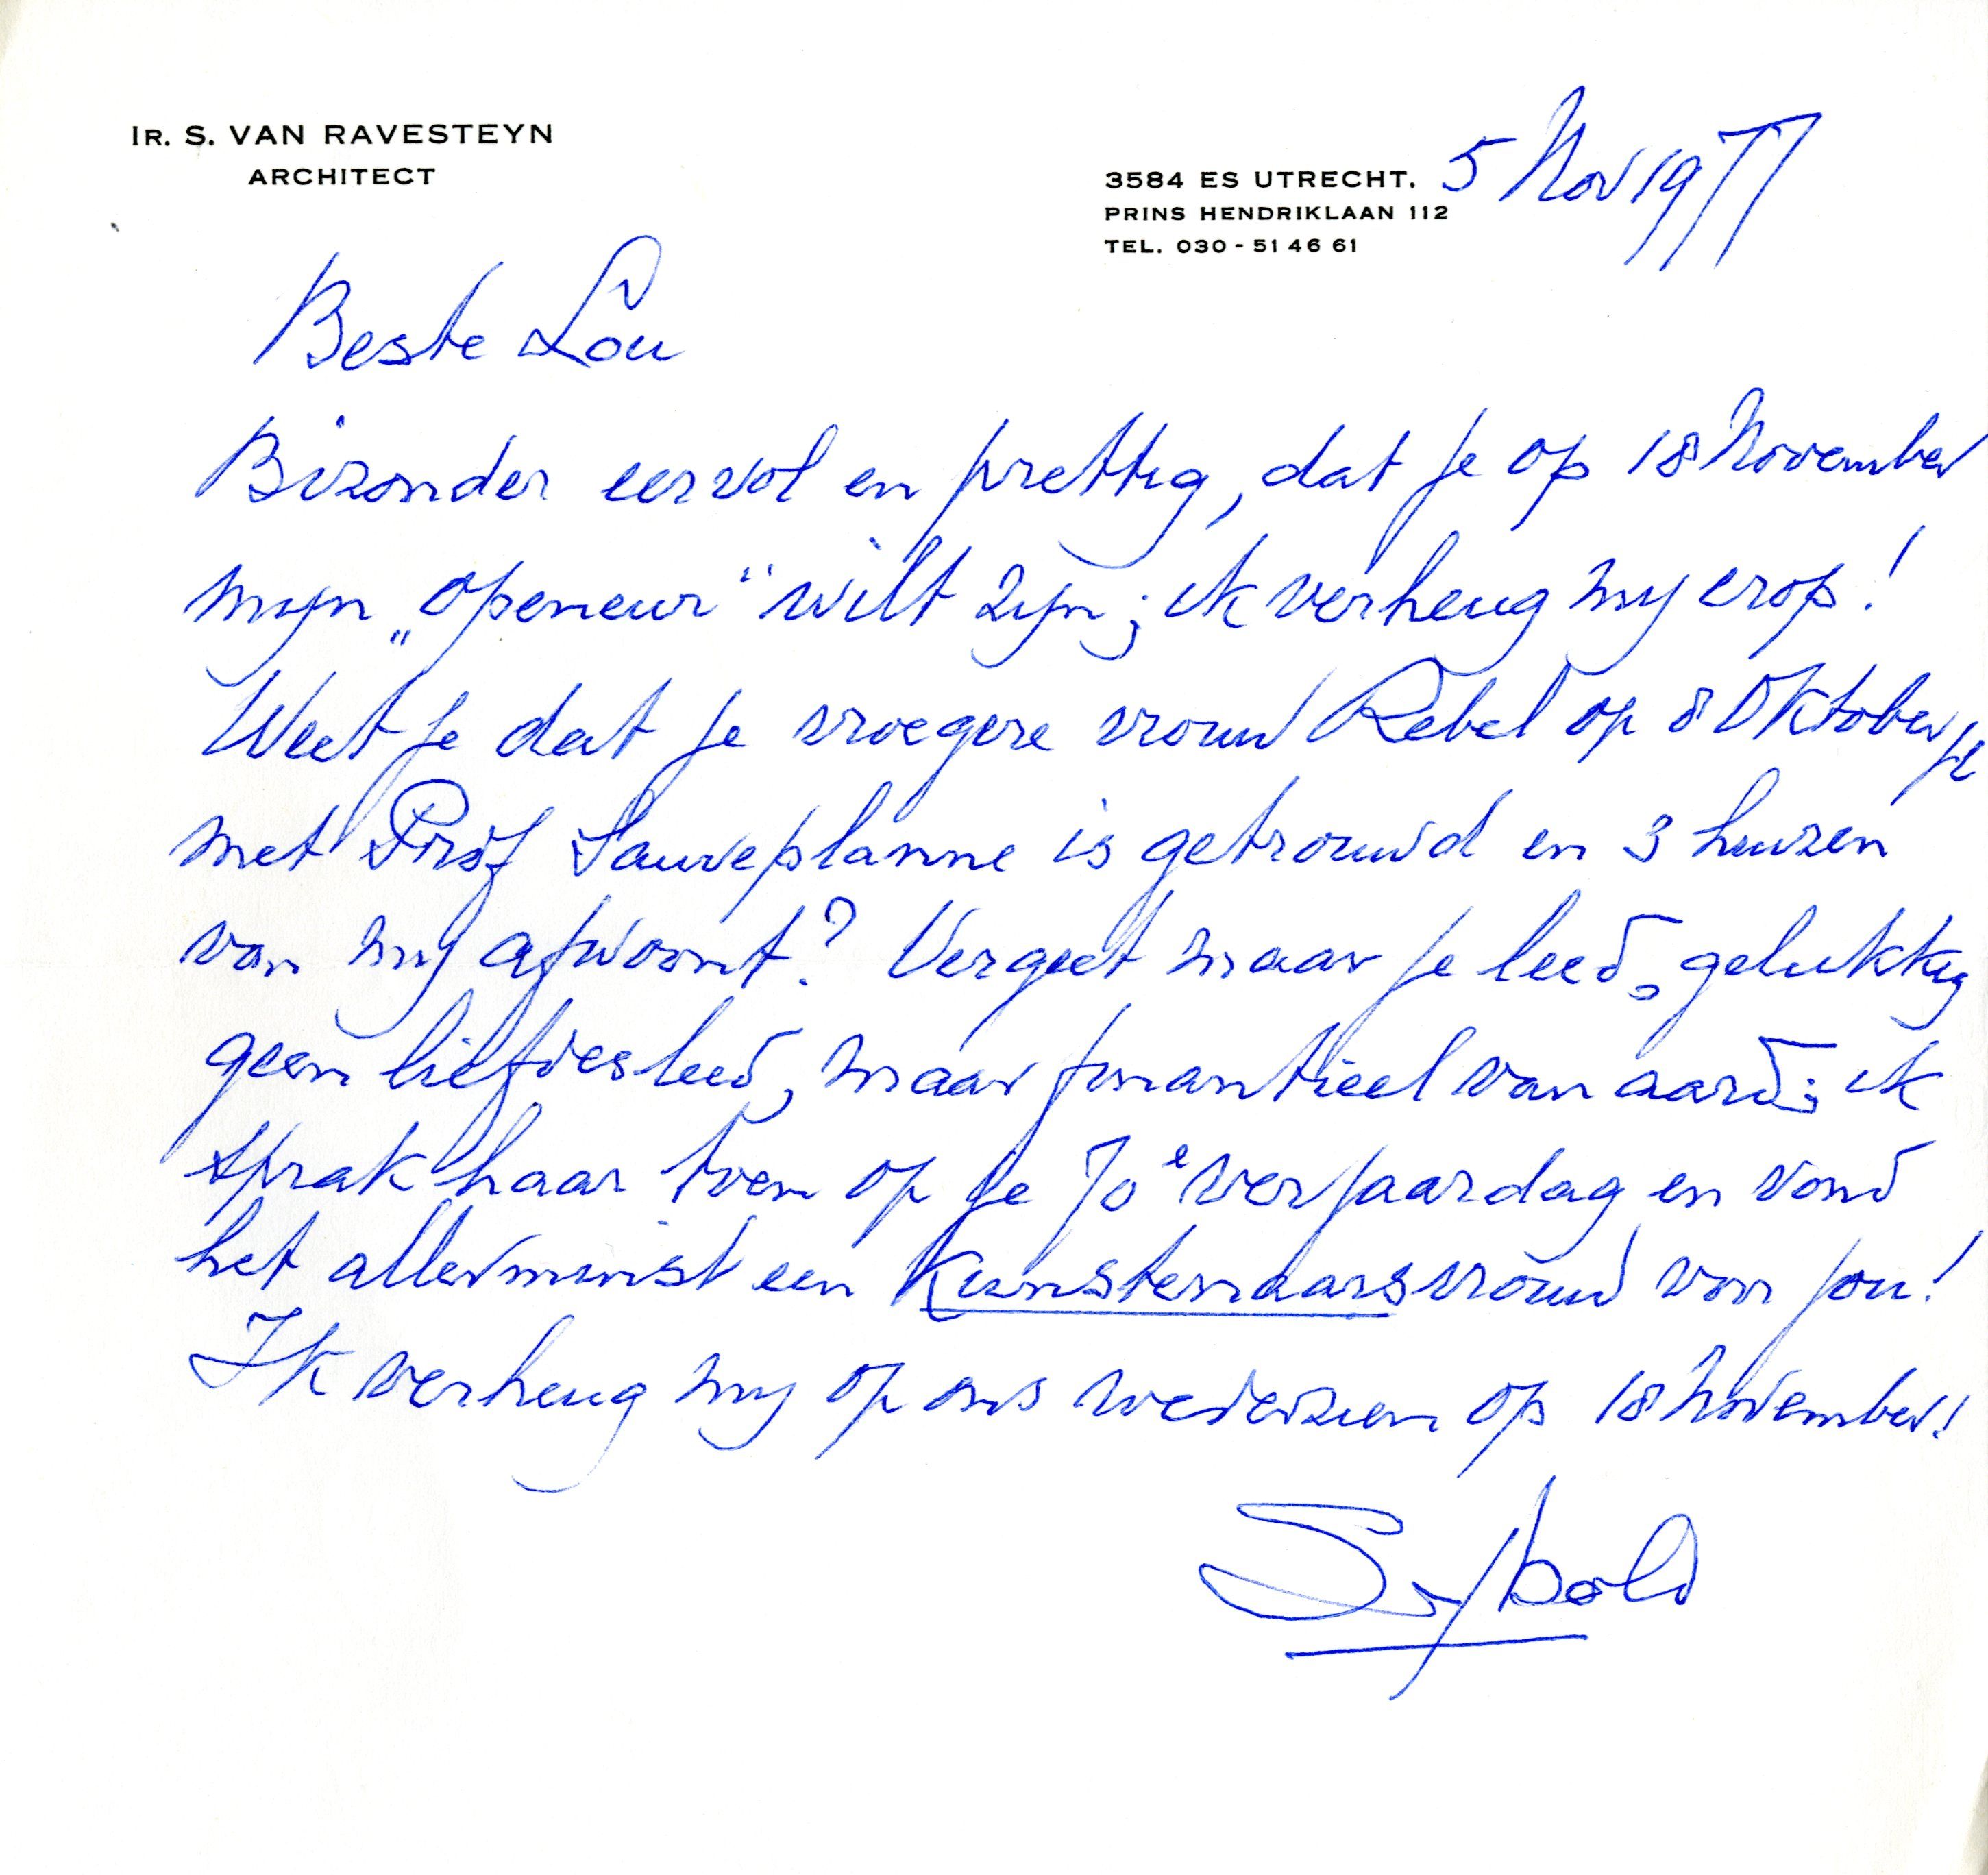 IR. S. VAN RAVESTEYN
ARCHITECT
3584 ES UTRECHT, 5 Nov 1977
PRINS HENDRIKLAAN 112
TEL. 030 - 51 46 61
Beste Lou
Bizonder eervol en prettig, dat je op 18 November
mijn „openeur“ wilt zijn; ik verheug mij erop!
Weet je dat je vroegere vrouw Rebel op 8 Oktober
met Prof Sauveplanne is getrouwd en 3 huizen
van mij afwoont? Vergeet maar je leed, gelukkig
geen liefdesleed, maar finantieel van aard; ik
sprak haar toen op je 70e verjaardag en vond
het allerminst een Kunstenaarsvrouw voor jou!
Ik verheug mij op ons wederzien op 18 November!
Sybold